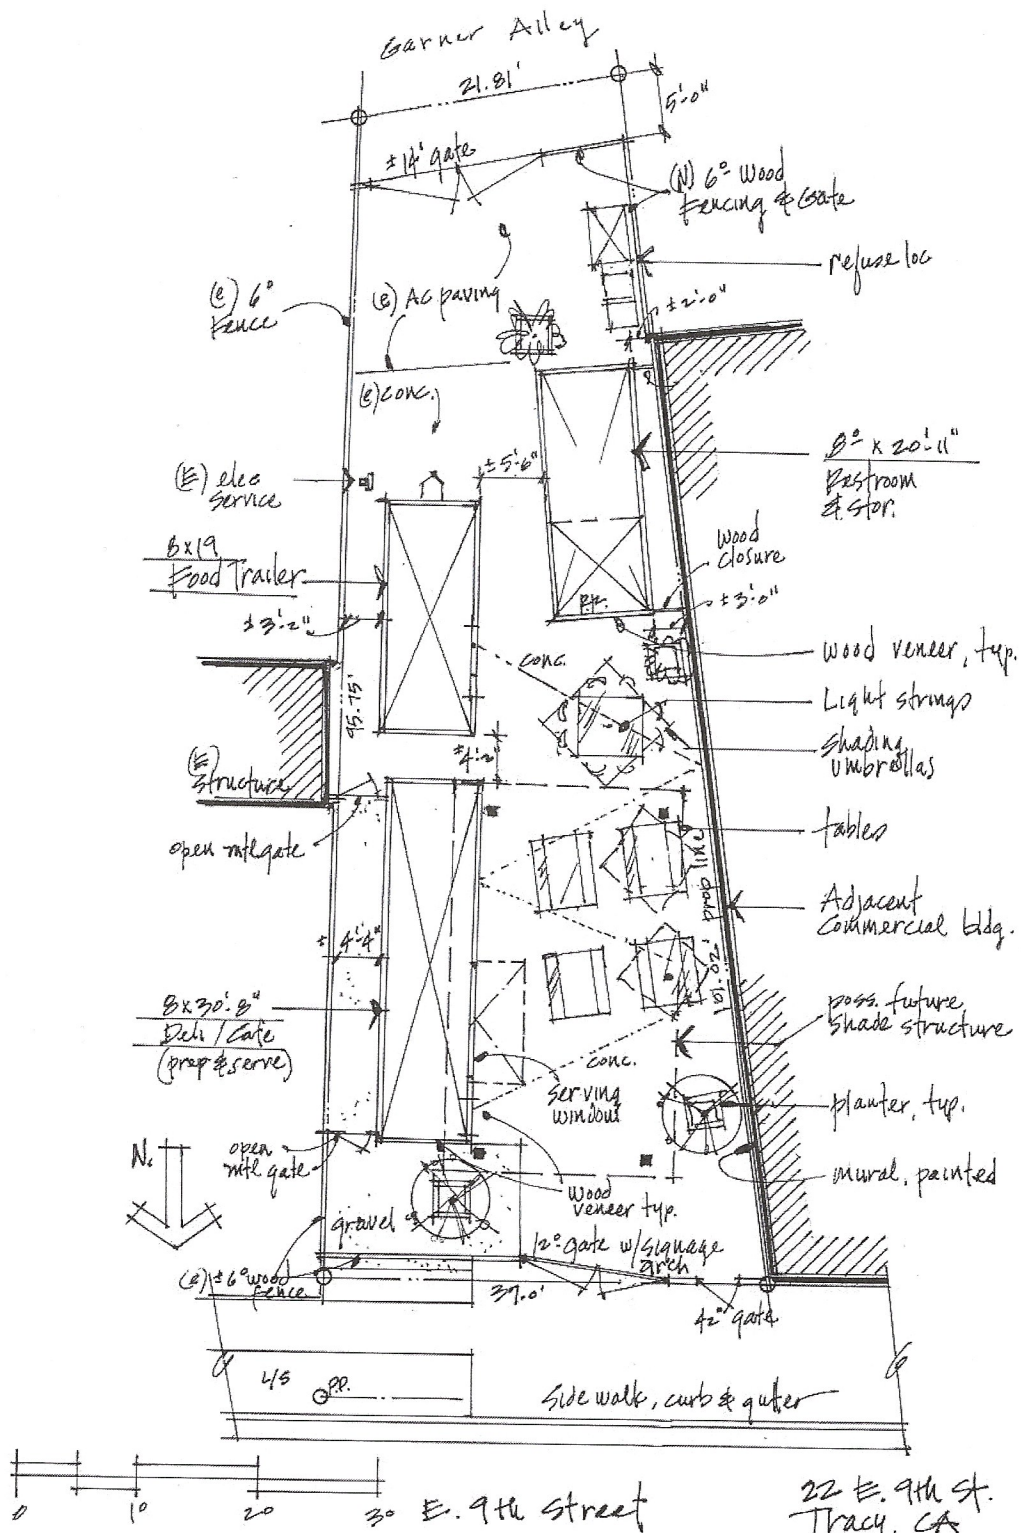 Garner Alley
21.81'
5'-0"
±14' gate
(N) 6⁰ Wood
Fencing & Gate
refuse loc
±2'-0"
(e) 6⁰
Fence
(e) AC paving
(e) conc.
±5'-6"
8⁰ x 20'-11"
Restroom
& stor.
(E) elec
service
8x19
Food Trailer
±3'-2"
wood
closure
±3'-0"
wood veneer, typ.
conc.
Light strings
shading
umbrellas
95.75'
±4'-2"
(E)
structure
open mtl gate
tables
prop line
101.20'
Adjacent
Commercial bldg.
± 4'-4"
8x30'-8"
Deli / Cafe
(prep & serve)
poss. future
shade structure
conc.
serving
window
planter, typ.
N.
open
mtl gate
mural, painted
wood
veneer typ.
gravel
12⁰ gate w/signage
arch
(e) ±6⁰ wood
fence
37.0'
42" gate
L/S
P.P.
Sidewalk, curb & gutter
0 10 20 30
E. 9th Street
22 E. 9th St.
Tracy, CA